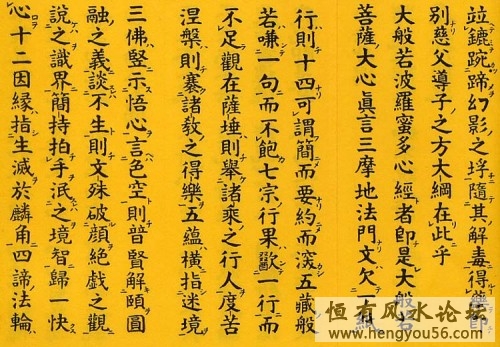 竝鑣踠蹄幻影之埒隨其解毒得藥卽
別慈父導子之方大綱在此乎
大般若波羅蜜多心經者卽是大般若
菩薩大心眞言三摩地法門文欠一紙
行則十四可謂簡而要約而深五藏般
若嗛一句而不飽七宗行果歠一行而
不足觀在薩埵則舉諸乘之行人度苦
涅槃則褰諸敎之得樂五蘊橫指迷境
三佛竪示悟心言色空則普賢解頤圓
融之義談不生則文殊破顏絕戲之觀
說之識界簡持拍手泯之境智歸一快
心十二因緣指生滅於麟角四諦法輪
恒有风水论坛
www.hengyou56.com